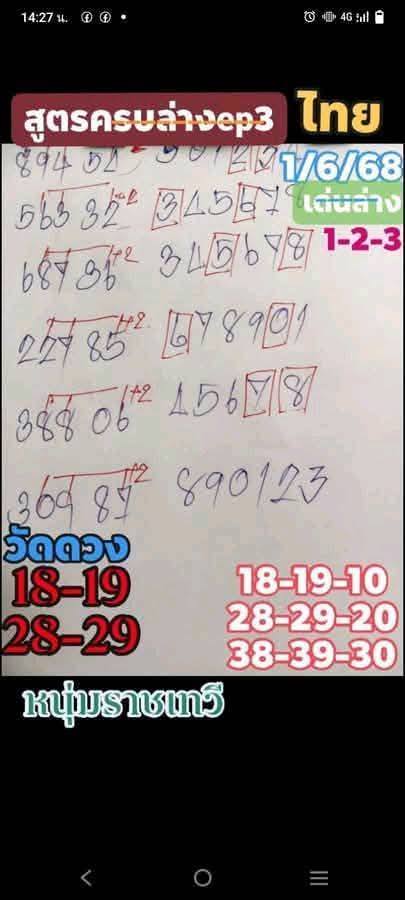 14:27 น.
4G
สูตรครบล่างep3 ไทย
894 51
1/6/68
563 32 +2 345678
เด่นล่าง
1-2-3
687 36 +2 345678
227 85 +2 678901
388 06 +2 45678
369 87 +2 890123
วัดดวง
18-19
28-29
18-19-10
28-29-20
38-39-30
หนุ่มราชเทวี